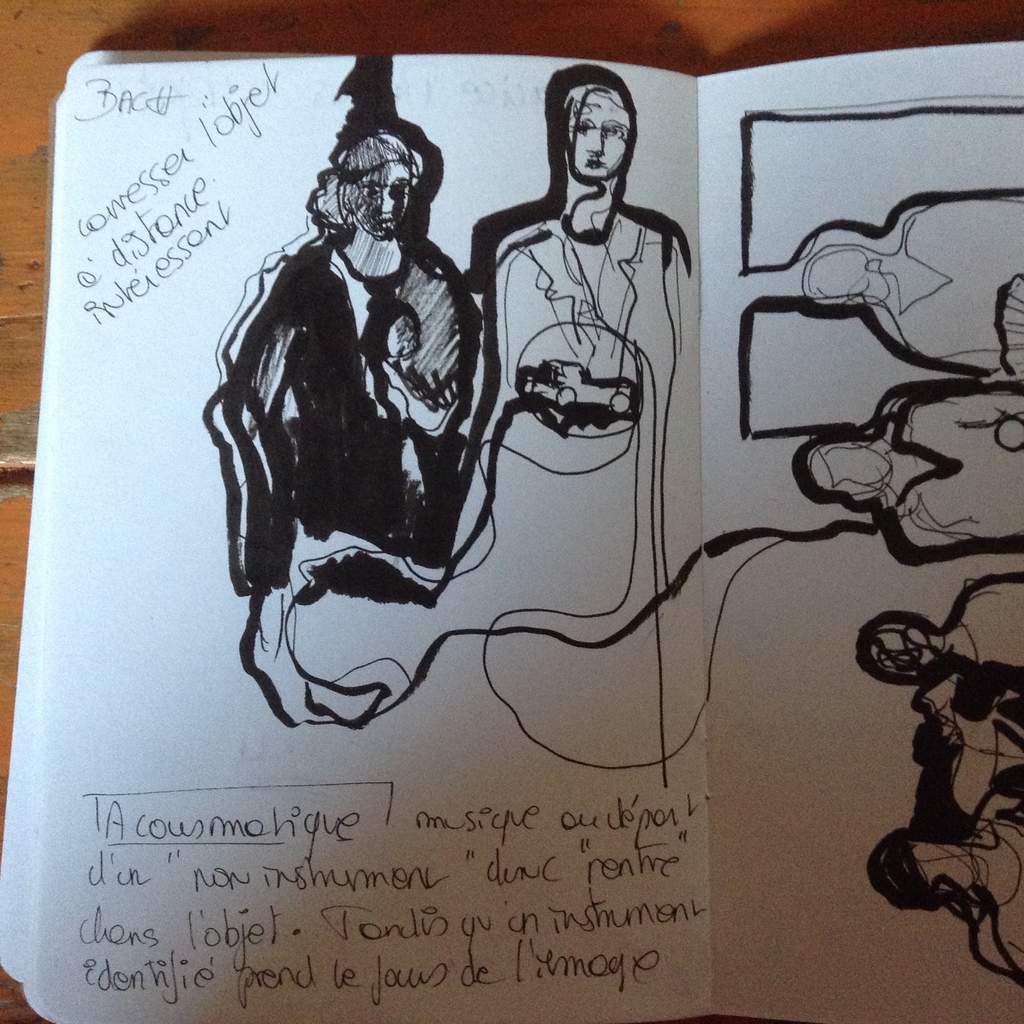 BACH
caresser l'objet
à distance.
intéressant
Acousmatique musique au départ
d'un "non instrument" donc "rentre"
dans l'objet. Tandis qu'un instrument
identifié prend le pas de l'image